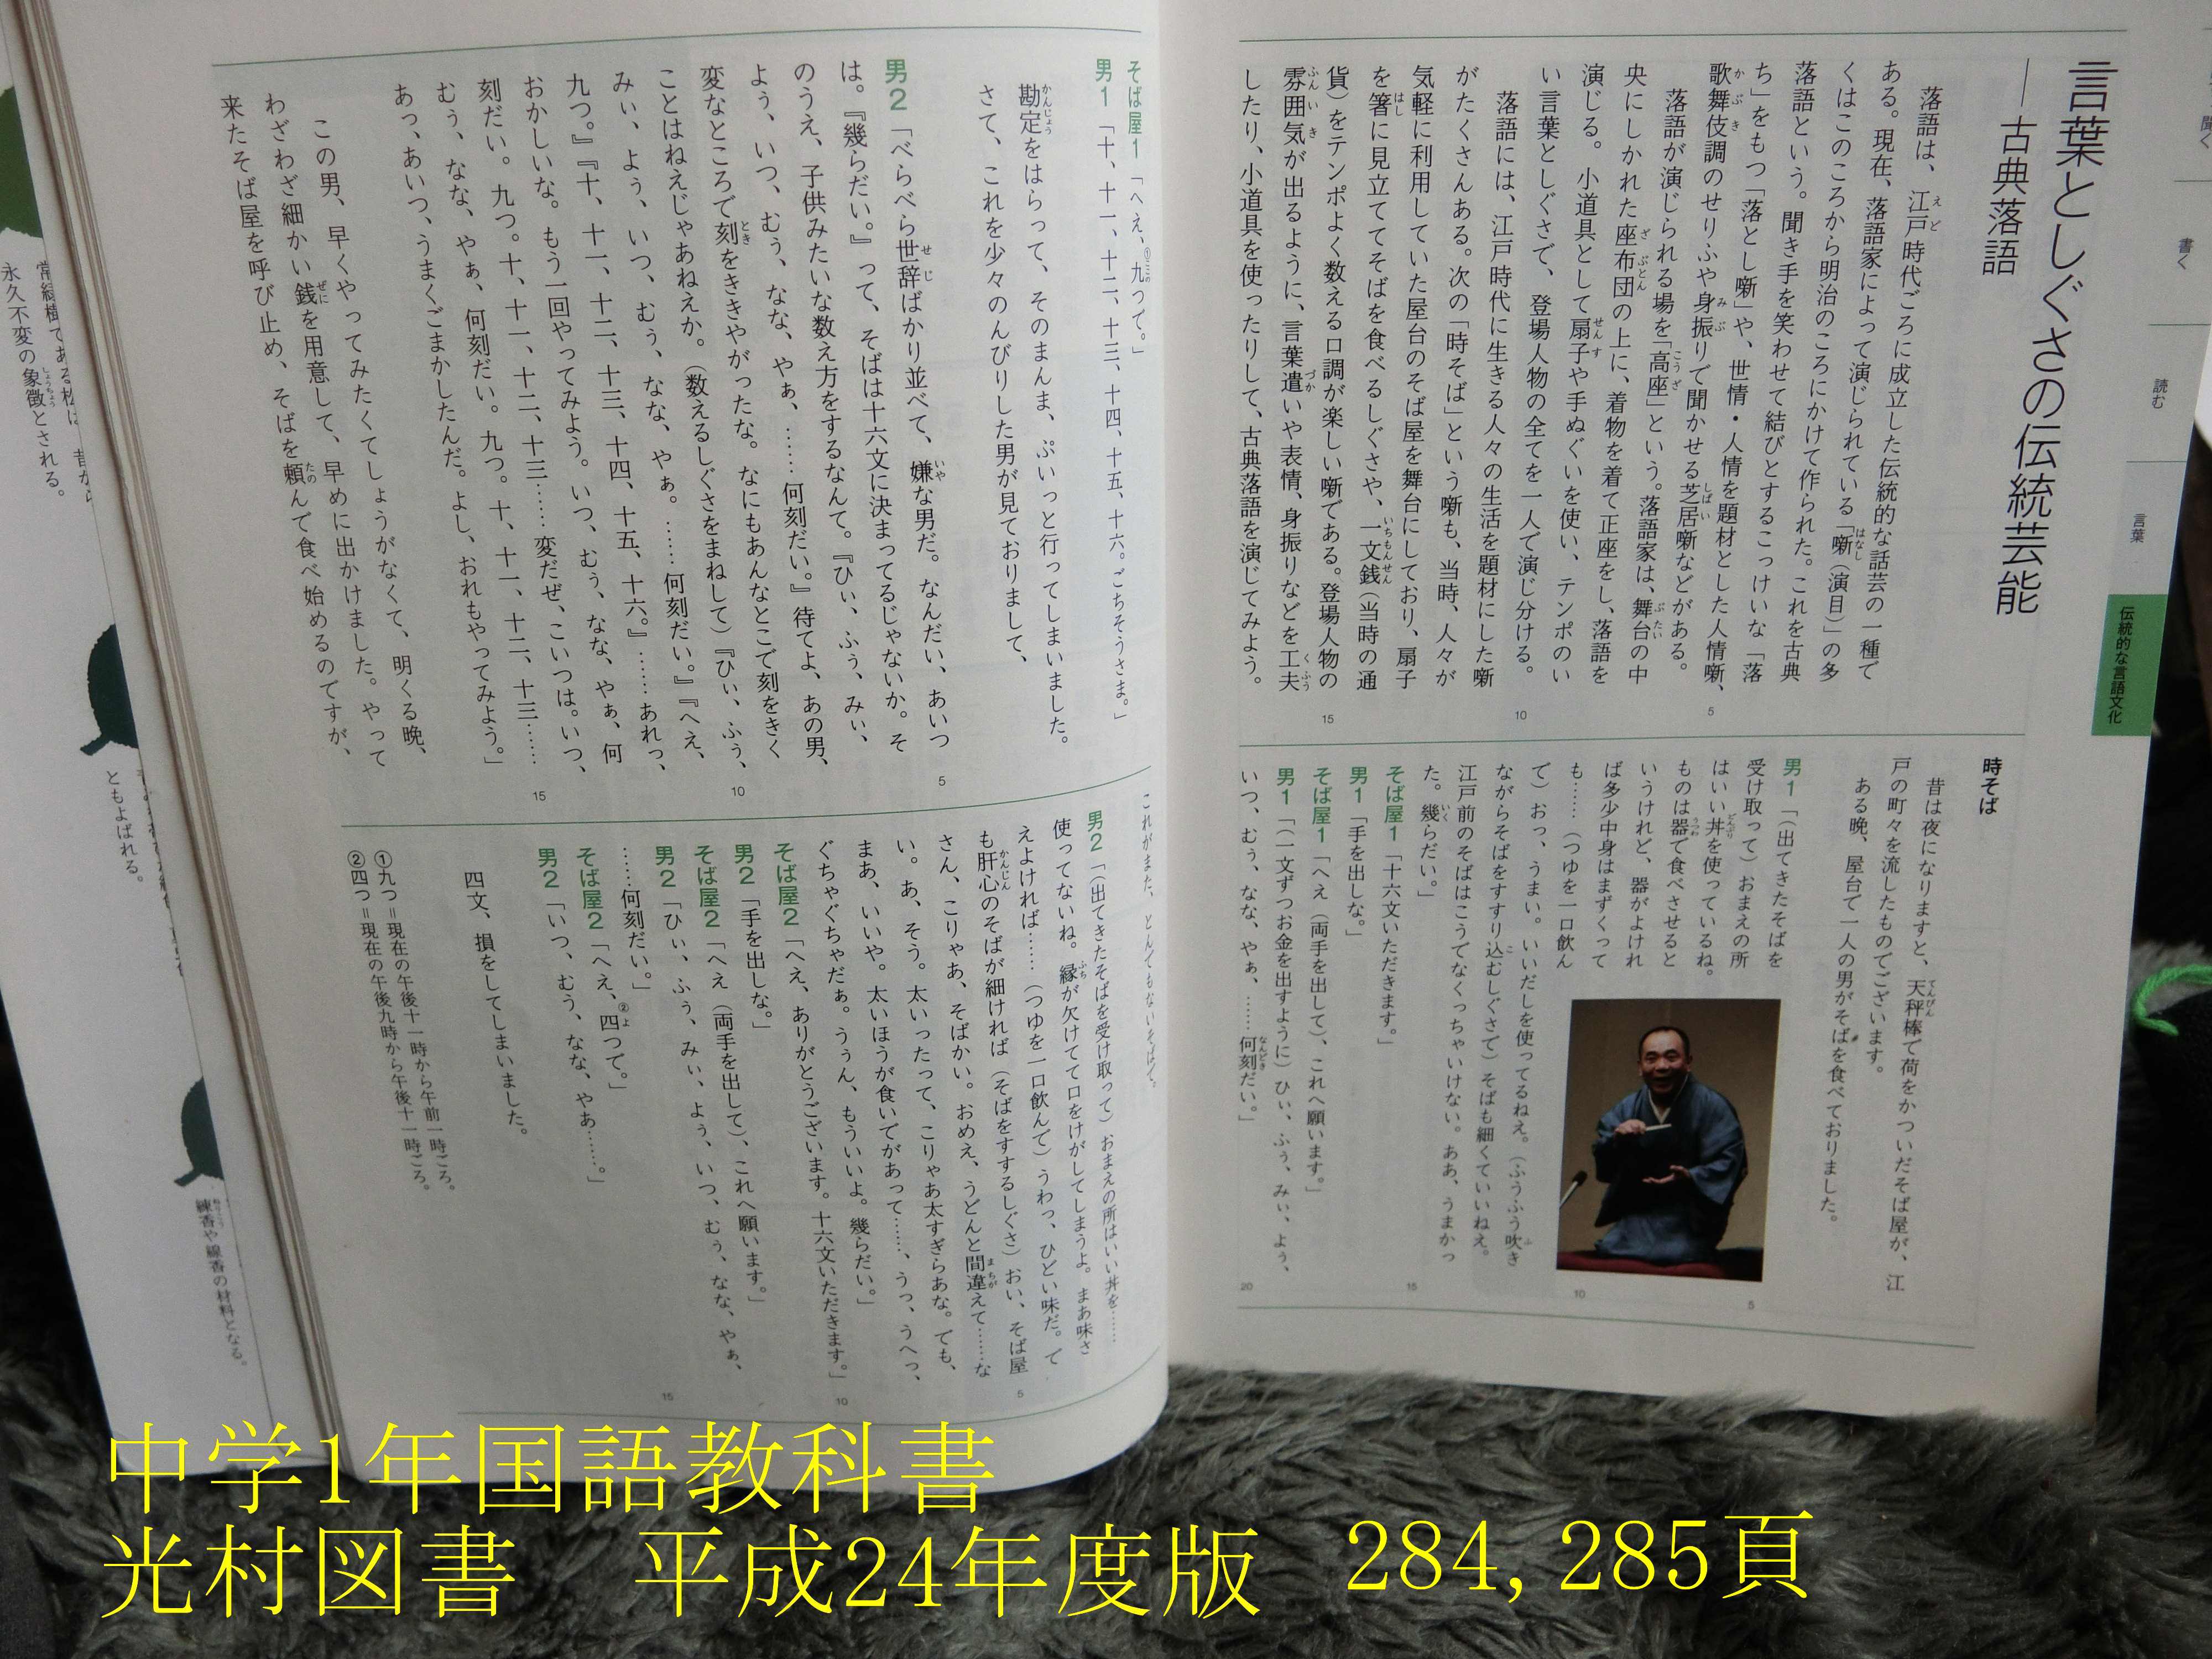 聞く
書く
読む
言葉
伝統的な言語文化
言葉としぐさの伝統芸能
――古典落語
落語は、江戸時代ごろに成立した伝統的な話芸の一種で
ある。現在、落語家によって演じられている「噺(演目)」の多
くはこのころから明治のころにかけて作られた。これを古典
落語という。聞き手を笑わせて結びとするこっけいな「落
ち」をもつ「落とし噺」や、世情・人情を題材とした人情噺、
歌舞伎調のせりふや身振りで聞かせる芝居噺などがある。
落語が演じられる場を「高座」という。落語家は、舞台の中
央にしかれた座布団の上に、着物を着て正座をし、落語を
演じる。小道具として扇子や手ぬぐいを使い、テンポのい
い言葉としぐさで、登場人物の全てを一人で演じ分ける。
落語には、江戸時代に生きる人々の生活を題材にした噺
がたくさんある。次の「時そば」という噺も、当時、人々が
気軽に利用していた屋台のそば屋を舞台にしており、扇子
を箸に見立ててそばを食べるしぐさや、一文銭(当時の通
貨)をテンポよく数える口調が楽しい噺である。登場人物の
雰囲気が出るように、言葉遣いや表情、身振りなどを工夫
したり、小道具を使ったりして、古典落語を演じてみよう。
時そば
昔は夜になりますと、天秤棒で荷をかついだそば屋が、江
戸の町々を流したものでございます。
ある晩、屋台で一人の男がそばを食べておりました。
男1「(出てきたそばを
受け取って)おまえの所
はいい丼を使っているね。
ものは器で食べさせると
いうけれど、器がよけれ
ば多少中身はまずくって
も……(つゆを一口飲ん
で)おっ、うまい。いいだしを使ってるねえ。(ふうふう吹き
ながらそばをすすり込むしぐさで)そばも細くていいねえ。
江戸前のそばはこうでなくっちゃいけない。ああ、うまかっ
た。幾らだい。」
そば屋1「十六文いただきます。」
男1「手を出しな。」
そば屋1「へえ(両手を出して)、これへ願います。」
男1「(一文ずつお金を出すように)ひぃ、ふぅ、みぃ、よぅ、
いつ、むぅ、なな、やぁ、……何刻だい。」
そば屋1「へえ、①九つで。」
男1「十、十一、十二、十三、十四、十五、十六。ごちそうさま。」
勘定をはらって、そのまんま、ぷいっと行ってしまいました。
さて、これを少々のんびりした男が見ておりまして、
男2「べらべら世辞ばかり並べて、嫌な男だ。なんだい、あいつ
は。『幾らだい。』って、そばは十六文に決まってるじゃないか。そ
のうえ、子供みたいな数え方をするなんて。『ひぃ、ふぅ、みぃ、
よぅ、いつ、むぅ、なな、やぁ、……何刻だい。』待てよ、あの男、
変なところで刻をききやがったな。なにもあんなとこで刻をきく
ことはねえじゃあねえか。(数えるしぐさをまねして)『ひぃ、ふぅ、
みぃ、よう、いつ、むぅ、なな、やぁ。……何刻だい。』『へえ、
九つ。』『十、十一、十二、十三、十四、十五、十六。』……あれっ、
おかしいな。もう一回やってみよう。いつ、むぅ、なな、やぁ、何
刻だい。九つ。十、十一、十二、十三……変だぜ、こいつは。いつ、
むぅ、なな、やぁ、何刻だい。九つ。十、十一、十二、十三……
あっ、あいつ、うまくごまかしたんだ。よし、おれもやってみよう。」
この男、早くやってみたくてしょうがなくて、明くる晩、
わざわざ細かい銭を用意して、早めに出かけました。やって
来たそば屋を呼び止め、そばを頼んで食べ始めるのですが、
これがまた、とんでもないそばで。
男2「(出てきたそばを受け取って)おまえの所はいい丼を……
使ってないね。縁が欠けてて口をけがしてしまうよ。まあ味さ
えよければ……(つゆを一口飲んで)うわっ、ひどい味だ。で
も肝心のそばが細ければ(そばをすするしぐさ)おい、そば屋
さん、こりゃあ、そばかい。おめえ、うどんと間違えて……な
い。あ、そう。太いったって、こりゃあ太すぎらあな。でも、
まあ、いいや。太いほうが食いでがあって……、うっ、うへっ、
ぐちゃぐちゃだぁ。うぅん、もういいよ。幾らだい。」
そば屋2「へえ、ありがとうございます。十六文いただきます。」
男2「手を出しな。」
そば屋2「へえ(両手を出して)、これへ願います。」
男2「ひぃ、ふぅ、みぃ、よぅ、いつ、むぅ、なな、やぁ、
……何刻だい。」
そば屋2「へえ、②四つで。」
男2「いつ、むう、なな、やあ……。」
四文、損をしてしまいました。
①九つ=現在の午後十一時から午前一時ごろ。
②四つ=現在の午後九時から午後十一時ごろ。
常緑樹である松は、昔から
永久不変の象徴とされる。
ともよばれる。
練香や線香の材料となる。
中学1年国語教科書
光村図書 平成24年度版 284,285頁